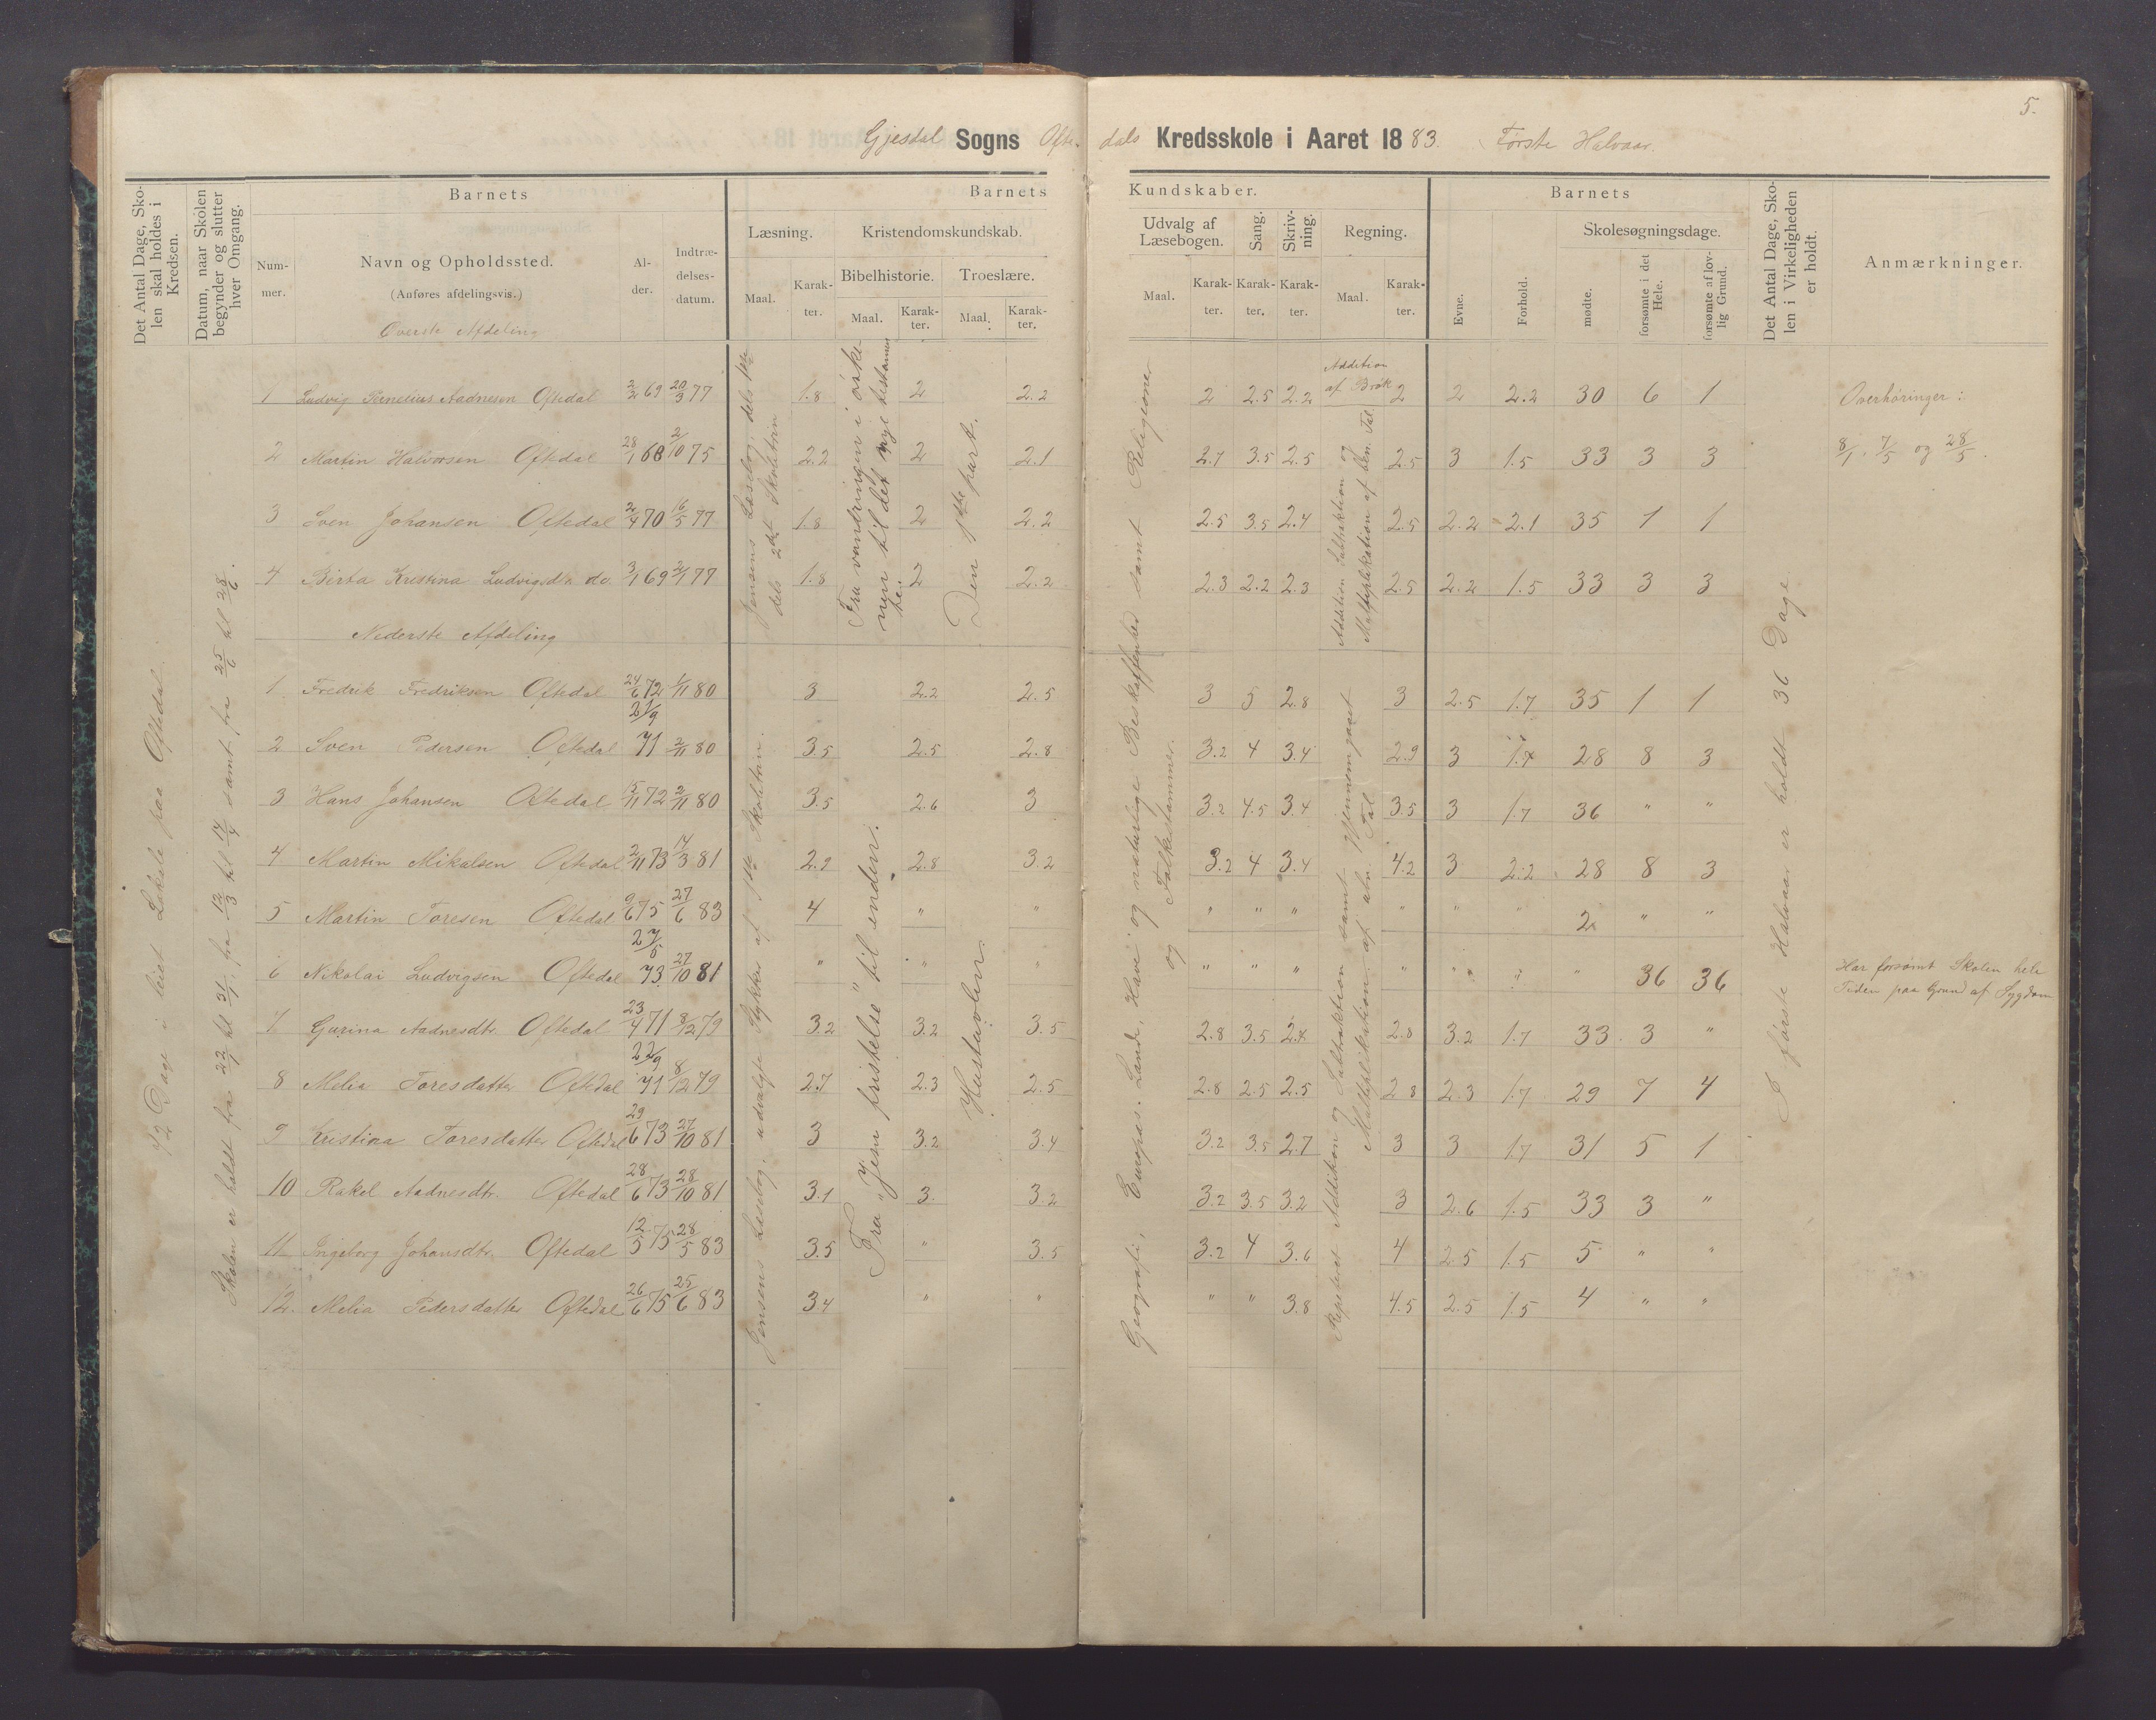 5.
Gjesdal Sogns Ofte- dals Kredsskole i Aaret 1883. Første Halvaar.
Det Antal Dage, Skolen skal holdes i Kredsen.
Datum, naar Skolen begynder og slutter hver Omgang.
Barnets
Nummer.
Navn og Opholdssted.
(Anføres afdelingsvis.)
Alder.
Indtrædelsesdatum.
Barnets Kundskaber.
Læsning.
Maal.
Karakter.
Kristendomskundskab.
Bibelhistorie.
Maal.
Karakter.
Troeslære.
Maal.
Karakter.
Udvalg af Læsebogen.
Maal.
Karakter.
Sang.
Karakter.
Skrivning.
Karakter.
Regning.
Maal.
Karakter.
Barnets
Evne.
Forhold.
Skolesøgningsdage.
mødte.
forsømte i det Hele.
forsømte af lovlig Grund.
Det Antal Dage, Skolen i Virkeligheden er holdt.
Anmærkninger.
72 Dage i leiet Lokale paa Oftedal.
Skolen er holdt fra 22/1 til 31/1, fra 12/3 til 17/4 samt fra 25/6 til 28/6.
Øverste Afdeling
1 Ludvig Aadnesen Oftedal 2/2 69 20/3 77 1.8 2 2.2 2 2.5 2.2 2 2 2.2 30 6 1 Overhøringer:
2 Martin Halvorsen Oftedal 28/1 68 2/10 75 2.2 2 2.1 2.7 3.5 2.5 2.5 3 1.5 33 3 3 8/1, 7/5 og 28/5.
3 Sven Johansen Oftedal 2/4 70 16/5 77 1.8 2 2.2 2.5 3.5 2.4 2.5 2.2 2.1 35 1 1
4 Birta Kristina Ludvigsdtr. do. 3/1 69 2/1 77 1.8 2 2.2 2.3 2.2 2.3 2.5 2.2 1.5 33 3 3
Jensens Læsebog, dels 1ste dels 2det Skoletrin
Fra vandringen i ørkenen til det nye testamente.
Den 1ste part.
Addition af Brøk
Addition, Subtraktion og Multiplikation af ben. Tal.
Nederste Afdeling
1 Fredrik Fredriksen Oftedal 24/6 72 1/11 80 3 2.2 2.5 3 5 2.8 3 2.5 1.7 35 1 1
2 Sven Pedersen Oftedal 21/9 71 2/11 80 3.5 2.5 2.8 3.2 4 3.4 2.9 3 1.7 28 8 3
3 Hans Johansen Oftedal 15/11 72 2/11 80 3.5 2.6 3 3.2 4.5 3.4 3.5 3 1.7 36 " "
4 Martin Mikalsen Oftedal 2/11 73 17/3 81 2.9 2.8 3.2 3.2 4 3.4 4.2 3 2.2 28 8 3
5 Martin Toresen Oftedal 9/6 75 27/6 83 4 " " " " " " " " 2 " "
6 Nikolai Ludvigsen Oftedal 73 27/10 81 " " " " " " " " " " 36 36 Har forsømt Skolen hele Tiden paa Grund af Sygdom
7 Gurina Aadnesdtr. Oftedal 23/4 71 8/12 79 3.2 3.2 3.5 2.8 3.5 2.8 2.8 3.2 1.7 33 3 "
8 Melia Toresdatter Oftedal 22/9 71 8/12 79 2.7 2.3 2.5 2.8 2.5 2.5 2.8 2.3 1.7 29 7 4
9 Kristina Toresdatter Oftedal 29/6 73 27/10 81 3 3.2 3.4 3.2 3.5 2.7 3 3 1.7 31 5 1
10 Rakel Aadnesdtr. Oftedal 28/6 73 28/10 81 3.1 3. 3.2 3.2 3.5 3.2 3 2.6 1.5 33 3 "
11 Ingeborg Johansdtr. Oftedal 12/5 75 28/5 83 3.5 " 3.5 3.2 4 3.6 4 2.5 1.5 5 " "
12. Melia Pedersdatter Oftedal 26/6 75 25/6 83 3.4 " " " " 3.8 4.5 2.5 1.5 4 " "
Jensens Læsebog. udvalgte Stykker af 1ste Skoletrin.
Fra "Jesu fristelse" til enden.
Hustavlen
Geografi, Europas Lande, Have og naturlige Beskaffenhed samt Religioner og Folkestammer.
Repeteret Addition og Subtraktion samt gjennemgaaet Multiplikation af ubn. Tal
I første Halvaar er holdt 36 Dage